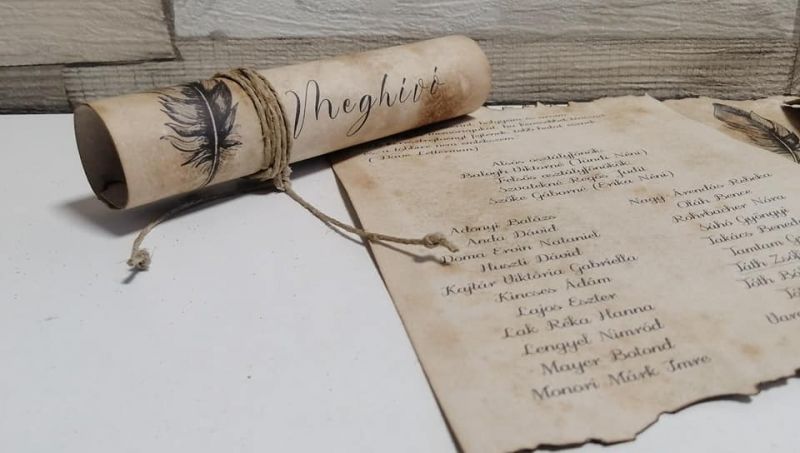 Meghívó
(Dave Letterman)
Alsós osztályfőnök:
Balogh Viktorné (Jundi Néni)
Felsős osztályfőnökök:
Szvatekné Rozős Judit
Szőke Gáborné (Erika Néni)
Adonyi Balázs
Anda Dávid
Doma Ervin Nataniel
Huszti Dávid
Kajtár Viktória Gabriella
Kincses Ádám
Lajos Eszter
Lak Réka Hanna
Lengyel Nimród
Mayer Botond
Monori Márk Imre
Nagy-Arendás Rebeka
Oláh Bence
Rohrbacher Nóra
Sáhó Gyöngyi
Takács Bened
Tamtam G
Tóth Zsó
Tóth B